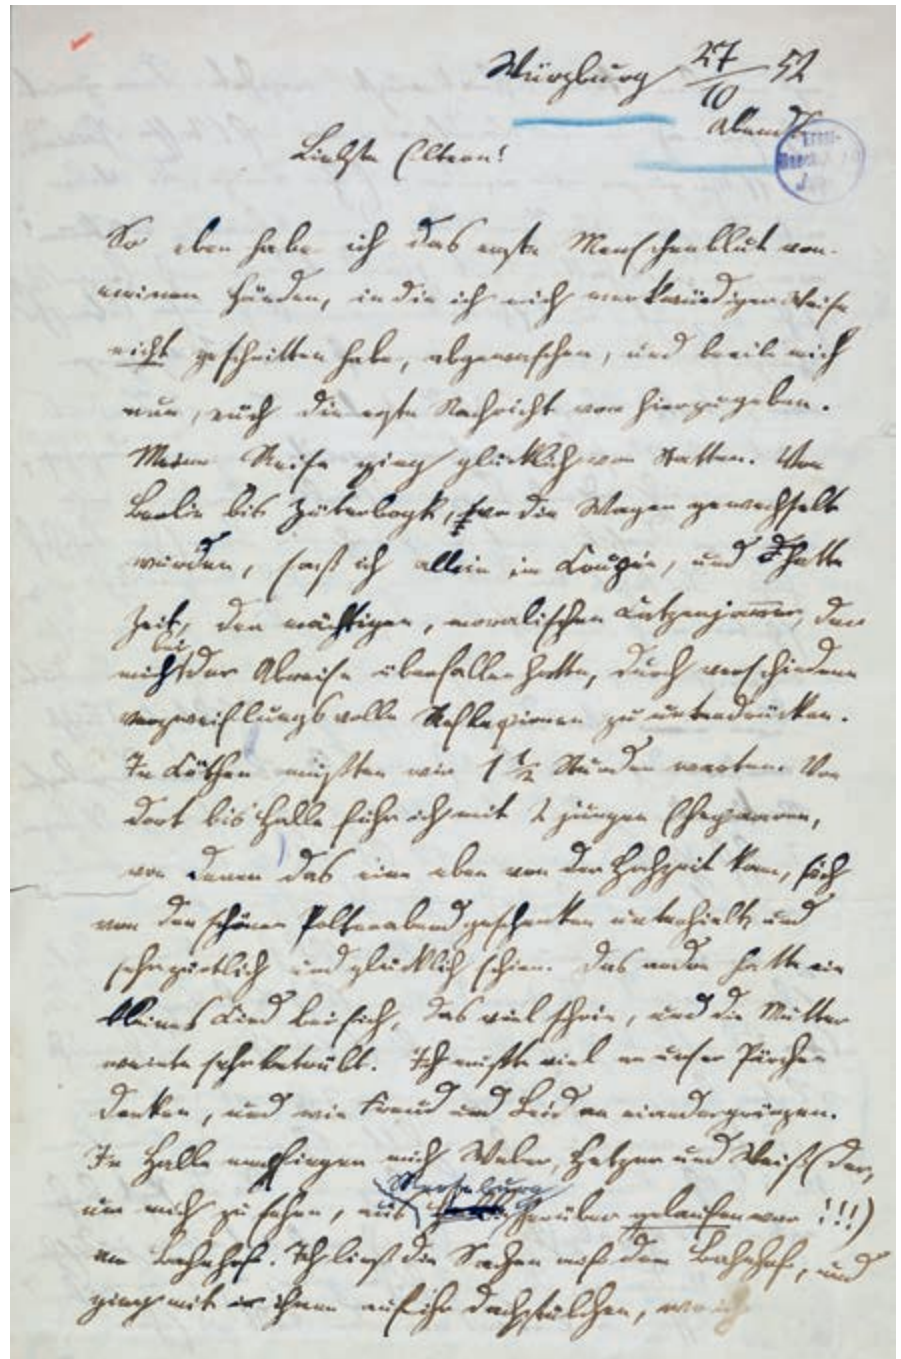 Würzburg 27/10 52
Abends
Ernst-
Haeckel
Jena
Liebste Eltern!
So eben habe ich das erste Menschenblut von
meinen Händen, in die ich mich merkwürdigerweise
nicht geschnitten habe, abgewaschen, und beeile mich
nun, euch die erste Nachricht von hier zu geben.
Meine Reise ging glücklich von Statten. Von
Berlin bis Jüterbogk, wo die Wagen gewechselt
wurden, saß ich allein im Coupée, und hatte
Zeit, den mächtigen, moralischen Katzenjammer, der
mich bei der Abreise überfallen hatte, durch verschiedene
verzweiflungsvolle Reflexionen zu unterdrücken.
In Cöthen mußten wir 1 1/2 Stunden warten. Von
dort bis Halle fuhr ich mit 2 jungen Ehepaaren,
von denen das eine eben von der Hochzeit kam, sich
von den schönen Polterabendgeschenken unterhielt und
sehr zärtlich und glücklich schien. Das andre hatte ein
kleines Kind bei sich, das viel schrie, und die Mutter
weinte sehr betrübt. Ich mußte viel an unser Pärchen
denken, und wie Freud und Leid an einander gränzen.
In Halle empfingen mich Weber, Hetzer und Weiß (der,
um mich zu sehen, aus Merseburg herüber gelaufen war!!!)
am Bahnhof. Ich ließ die Sachen auf dem Bahnhof, und
ging mit ihnen auf ihr Dachstübchen, wo ich